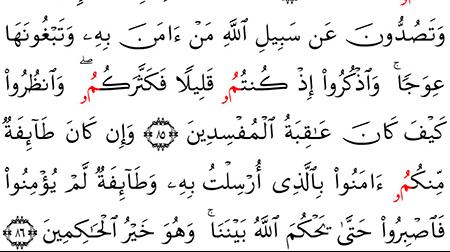 وَتَصُدُّونَ عَن سَبِيلِ اللَّهِ مَنْ ءَامَنَ بِهِۦ وَتَبْغُونَهَا
عِوَجًا ۚ وَاذْكُرُواْ إِذْ كُنتُمُۥ قَلِيلًا فَكَثَّرَكُمُۥ ۖ وَانظُرُواْ
كَيْفَ كَانَ عَـٰقِبَةُ الْمُفْسِدِينَ ﴿٨٥﴾ وَإِن كَانَ طَآئِفَةٌ
مِّنكُمُۥ ءَامَنُواْ بِالَّذِى أُرْسِلْتُ بِهِۦ وَطَآئِفَةٌ لَّمْ يُؤْمِنُواْ
فَاصْبِرُواْ حَتَّىٰ يَحْكُمَ اللَّهُ بَيْنَنَا ۚ وَهُوَ خَيْرُ الْحَـٰكِمِينَ ﴿٨٦﴾